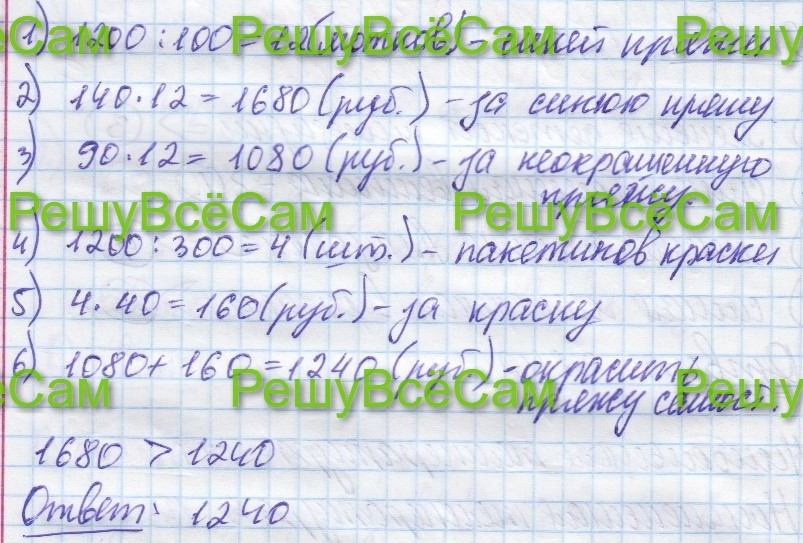 1) 1200 : 100 = 12 (мотков) - синей пряжи
2) 140 · 12 = 1680 (руб.) - за синюю пряжу
3) 90 · 12 = 1080 (руб.) - за неокрашенную
пряжу.
РешуВсёСам РешуВсёСам
4) 1200 : 300 = 4 (шт.) - пакетиков краски
5) 4 · 40 = 160 (руб.) - за краску
6) 1080 + 160 = 1240 (руб) - окрасить
РешуВсёСам
пряжу самост.
1680 > 1240
Ответ: 1240